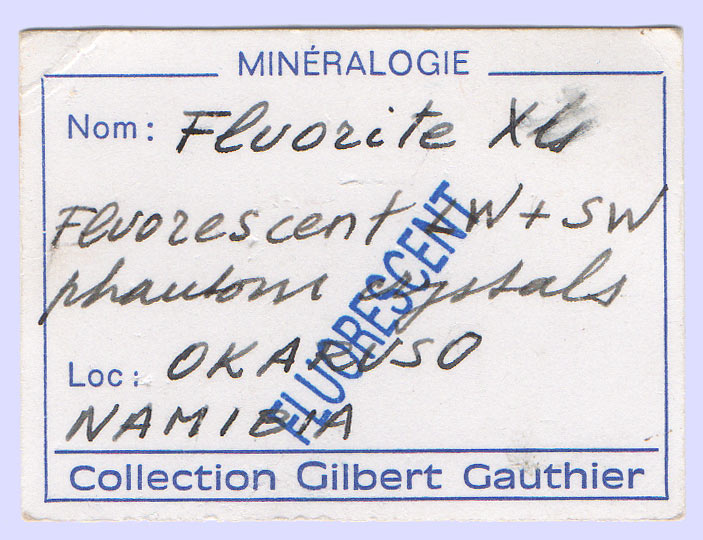 MINÉRALOGIE
Nom: Fluorite Xls
Fluorescent LW + SW
phantom crystals
FLUORESCENT
Loc: OKARUSO
NAMIBIA
Collection Gilbert Gauthier